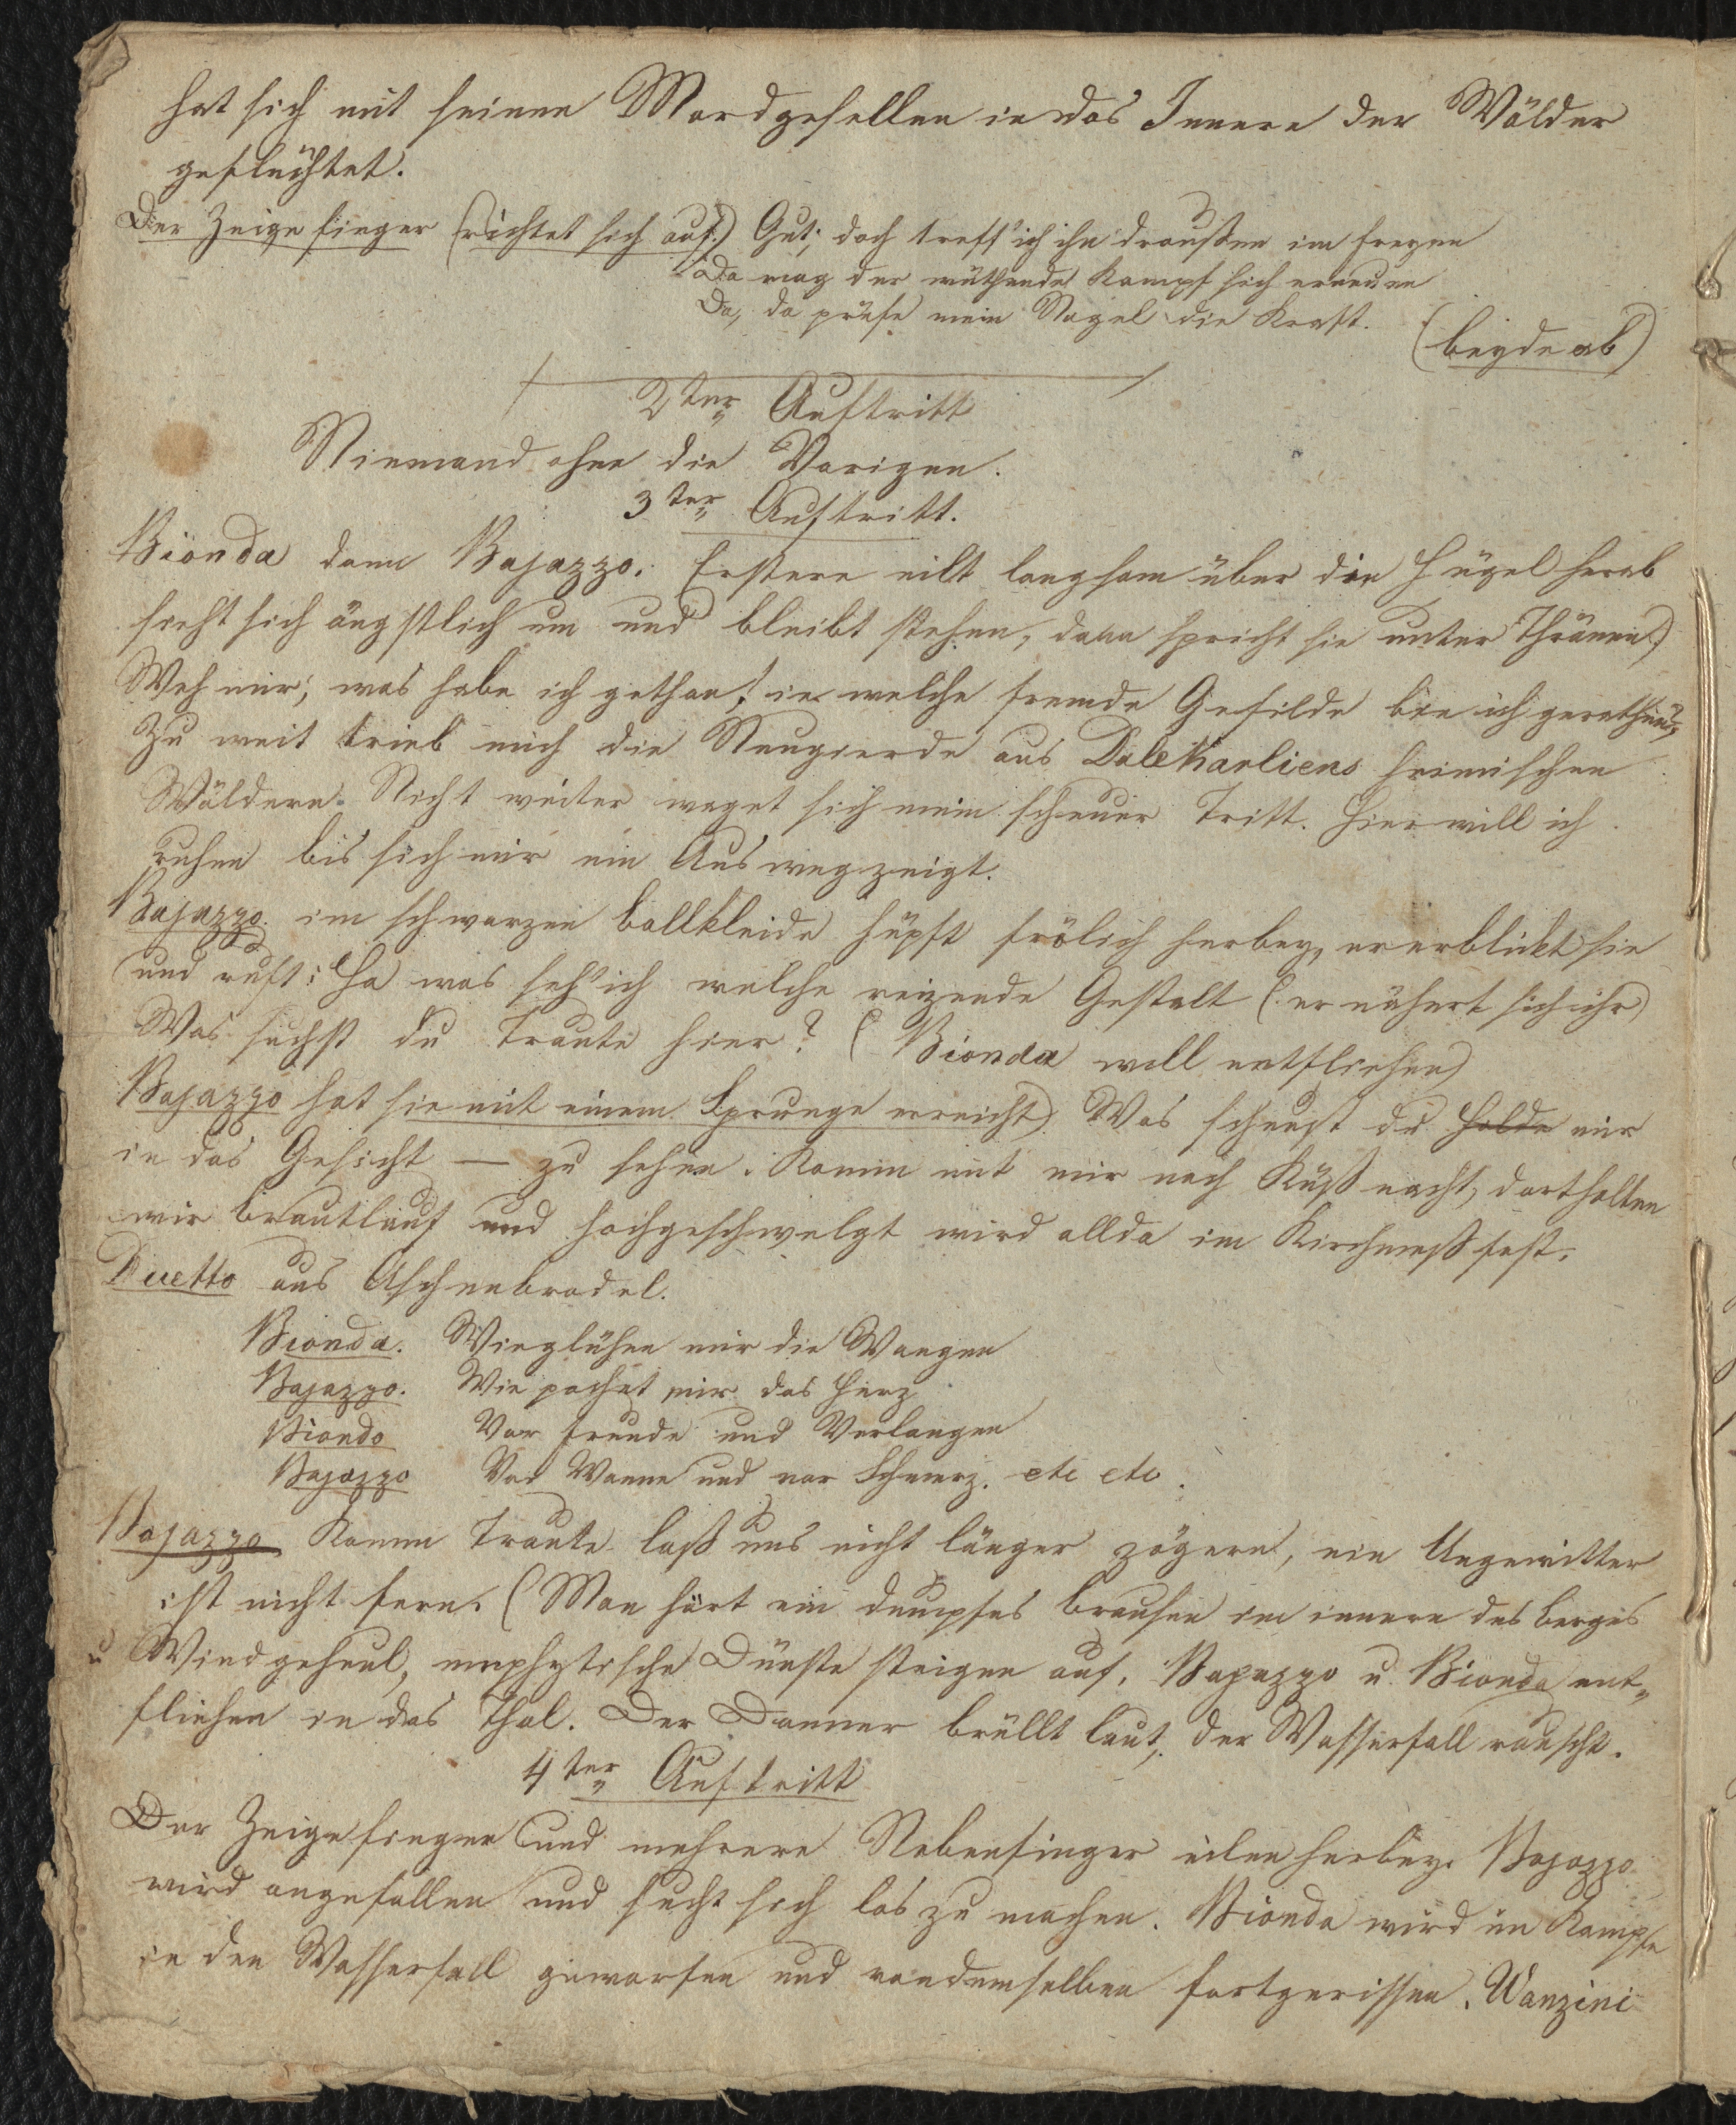 hat sich mit seinen Mordgesellen in das Innere der Wälder
geflüchtet.
Der Zeigefinger (richtet sich auf:) Gut; doch treff' ich ihn draußen im freyen
Da mag der wüthende Kampf sich erneuen
Da, da prüfe mein Nagel die Kraft.
(beyde ab)
2ter Auftritt
Niemand ohne die Vorigen.
3ter Auftritt.
Bionda dann Bajazzo. Erstere eilt langsam über die Hügel herab
sieht sich ängstlich um und bleibt stehen, dann spricht sie unter Thränen)
Weh mir; was habe ich gethan! in welche fremde Gefilde bin ich gerathen?
Zu weit trieb mich die Neugierde aus DaleKarliens heimischen
Wäldern. Nicht weiter waget sich mein scheuer Tritt. Hier will ich
ruhen bis sich mir ein Ausweg zeigt.
Bajazzo. im schwarzen ballkleide hüpft frölich herbey, er erblickt sie
und ruft: Ha was seh' ich welche reizende Gestalt (er nähert sich ihr)
Was suchst du Traute hier? (Bionda will entfliehen)
Bajazzo hat sie mit einem Sprunge erreicht) Was scheust du Holde mir
in das Gesicht — zu sehen. Komm mit mir nach Küßnacht, dort halten
wir brautlauf und hochgeschwelgt wird allda im Kirchmeßfest.
Duetto aus Aschenbrodel.
Bionda. Wie glühen mir die Wangen
Bajazzo. Wie pochet mir das Herz
Bionda Vor Freude und Verlangen
Bajazzo Vor Wonne und vor Schmerz. etc etc.
Bajazzo Komm Traute laß uns nicht länger zögern, ein Ungewitter
ist nicht fern. (Man hört ein dumpfes brausen im innern des berges
u Windgeheul, mephytische Dünste steigen auf. Bajazzo u. Bionda ent„
fliehen in das Thal. Der Donner brüllt laut, der Wasserfall rauscht.
4ter Auftritt
Der Zeigefinger und mehrere Nebenfinger eilen herbey. Bajazzo
wird angefallen und sucht sich los zu machen. Bionda wird im Kampfe
in den Wasserfall geworfen und von demselben fortgerissen. Wanzini